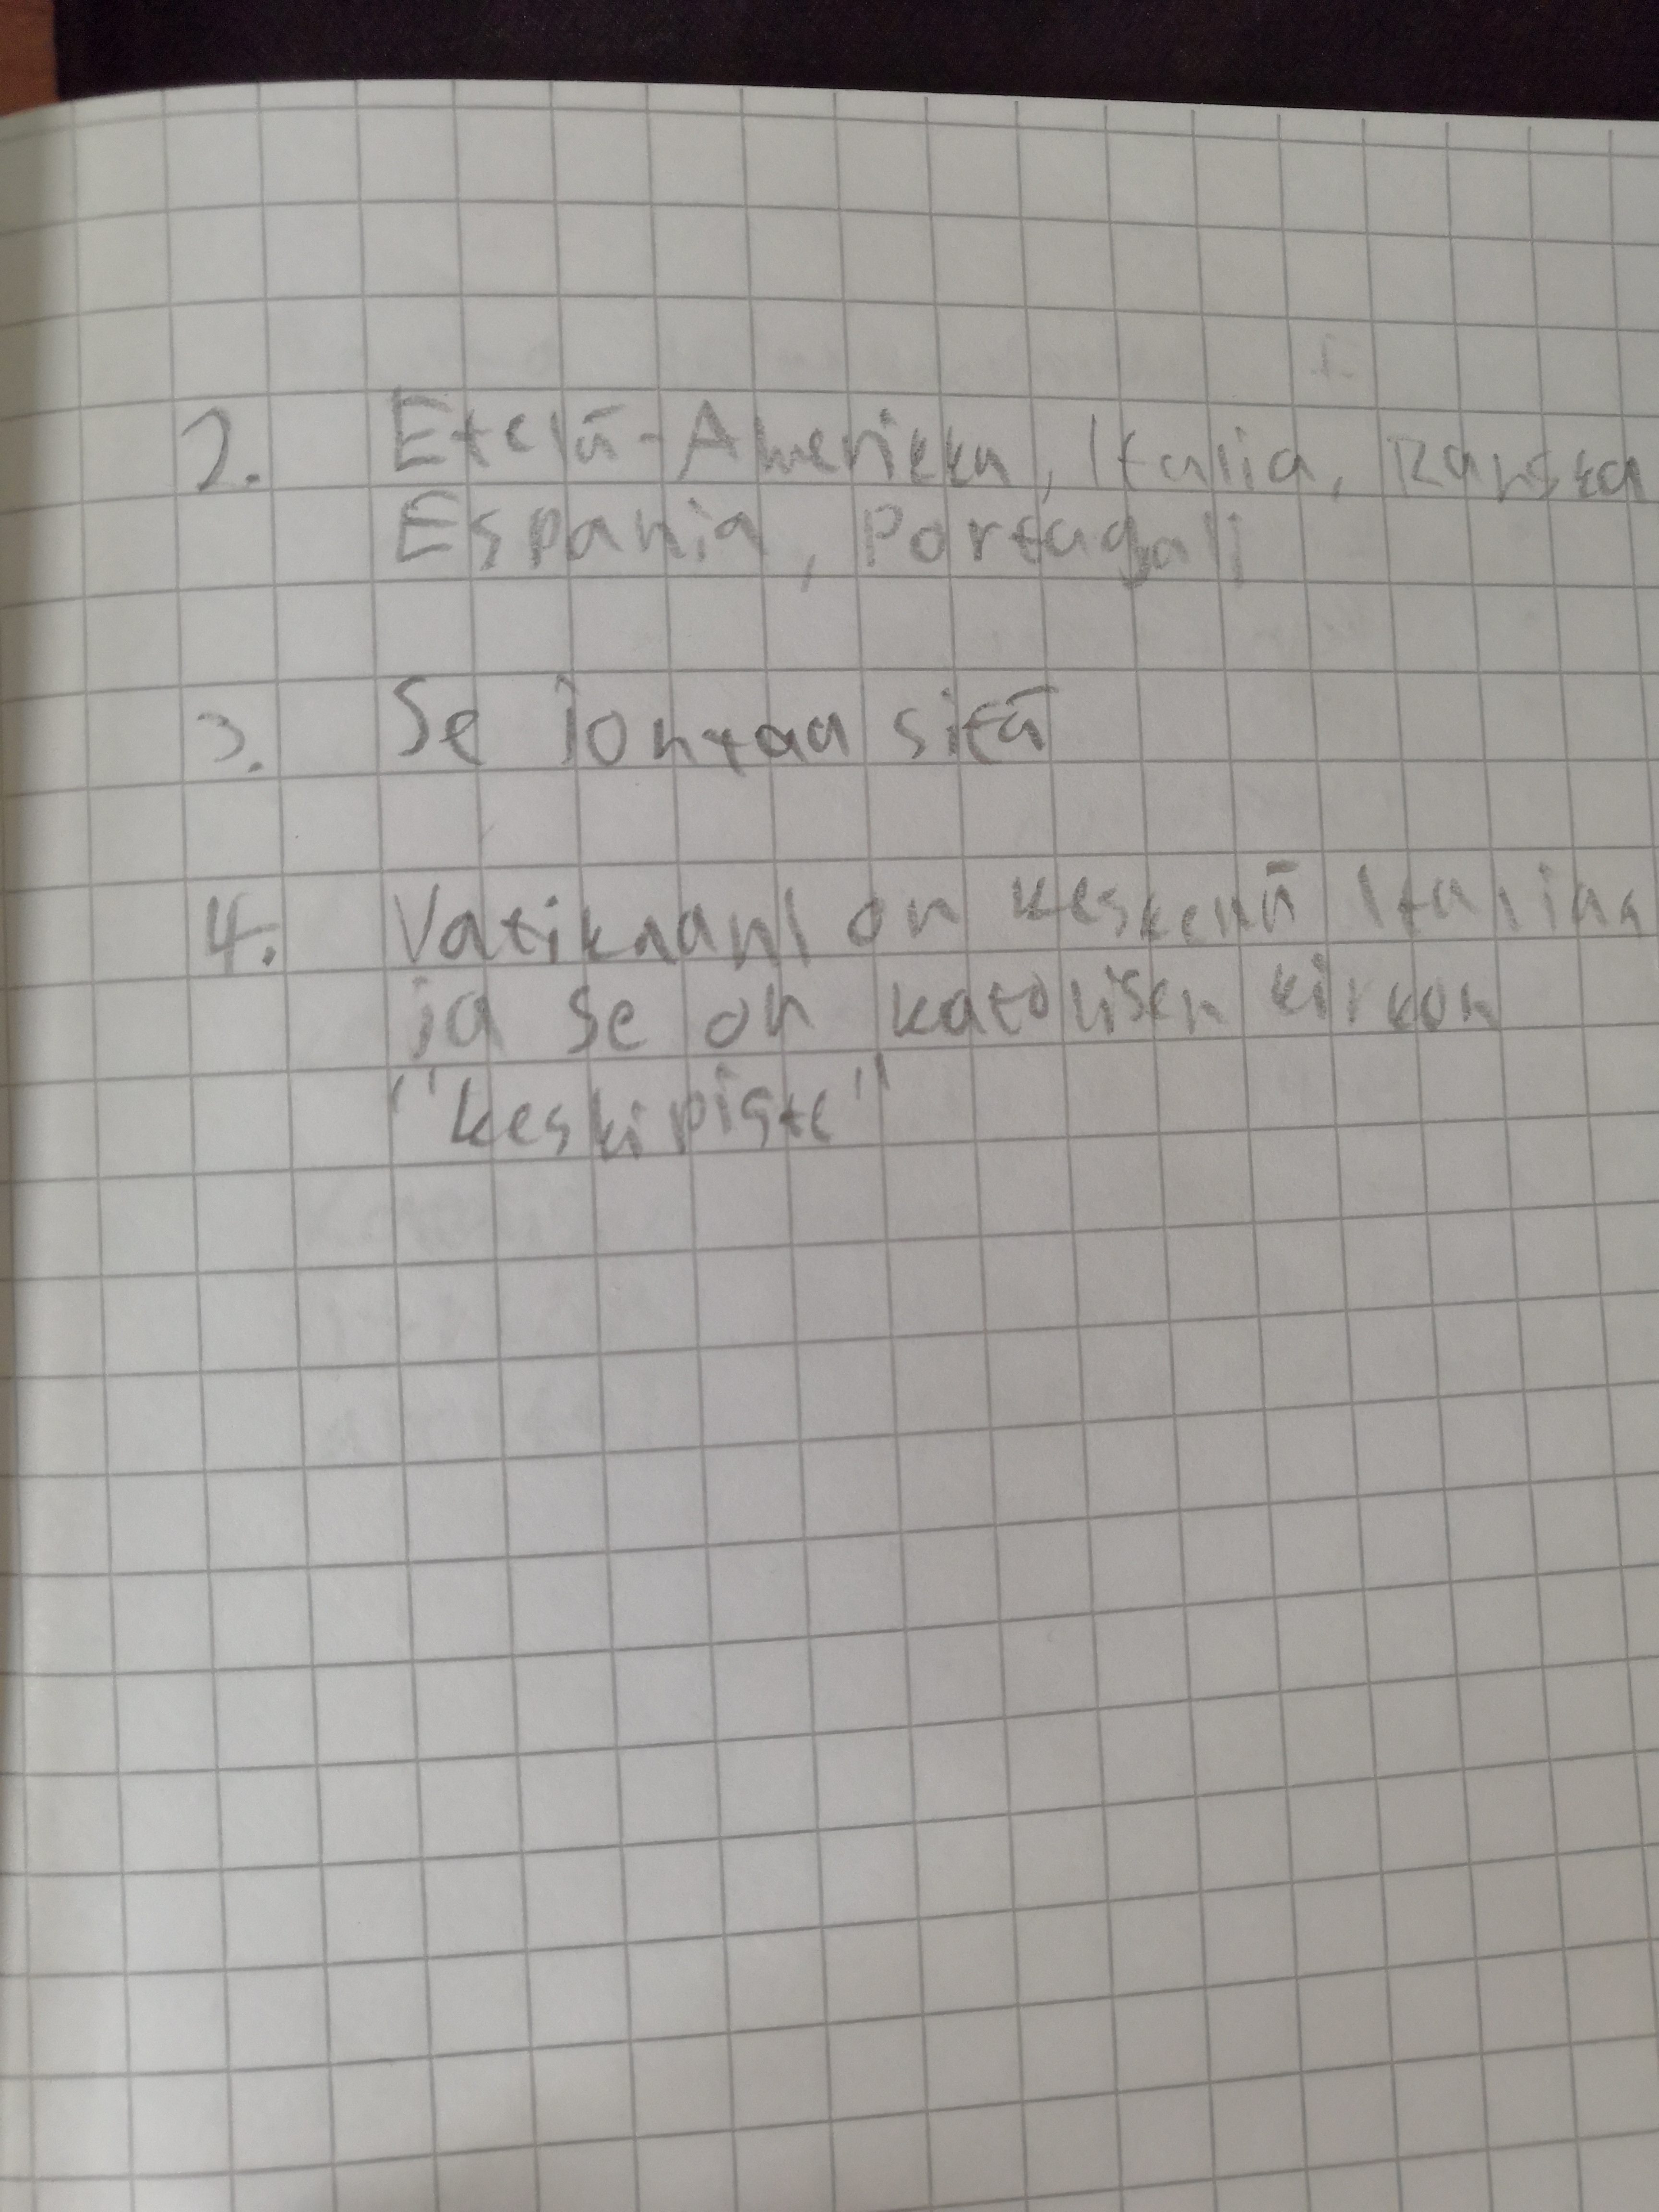 2. Etelä-Amerikka, Italia, Ranska
Espania, Portugali
3. Se johtaa sitä
4. Vatikaani on keskellä Italiaa
ja se on katolisen kirkon
"keskipiste"